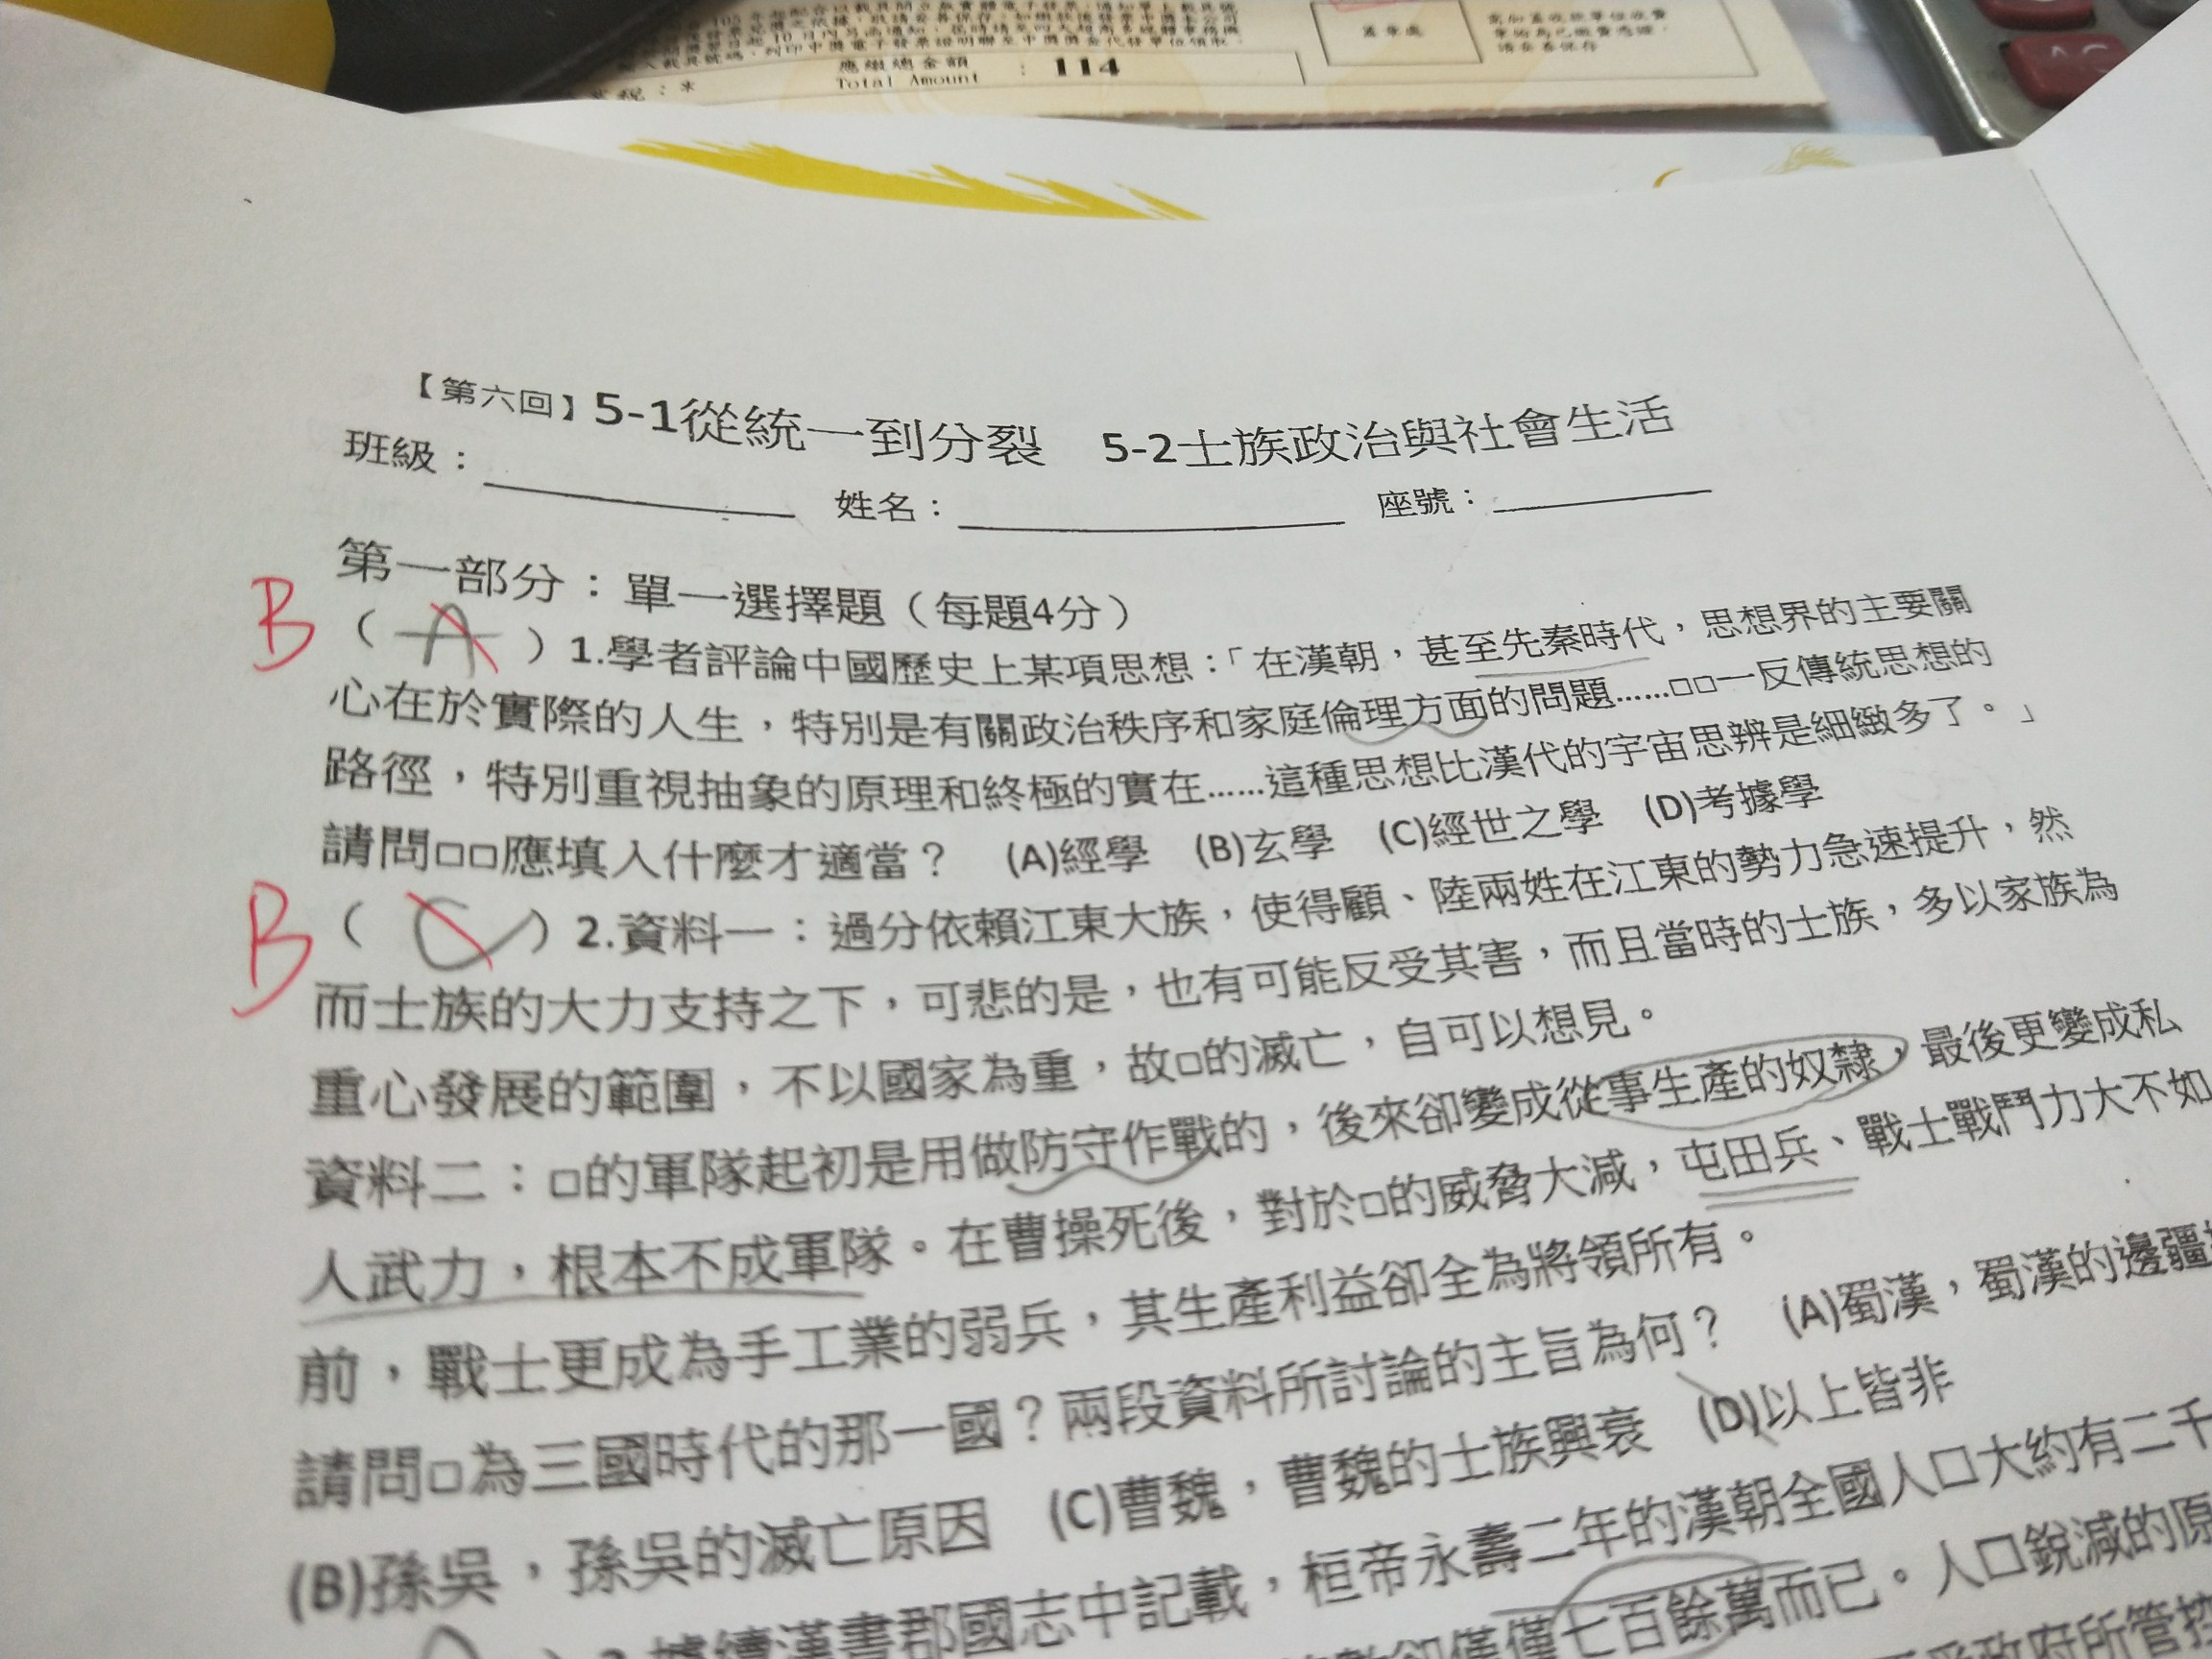 應繳總金額
Total Amount : 114
蓋章處
請妥善保存
AC
【第六回】5-1從統一到分裂 5-2士族政治與社會生活
班級： 姓名： 座號：
第一部分：單一選擇題（每題4分）
B（ A ）1.學者評論中國歷史上某項思想：「在漢朝，甚至先秦時代，思想界的主要關
心在於實際的人生，特別是有關政治秩序和家庭倫理方面的問題……□□一反傳統思想的
路徑，特別重視抽象的原理和終極的實在……這種思想比漢代的宇宙思辨是細緻多了。」
請問□□應填入什麼才適當？ (A)經學 (B)玄學 (C)經世之學 (D)考據學
B（ C ）2.資料一：過分依賴江東大族，使得顧、陸兩姓在江東的勢力急速提升，然
而士族的大力支持之下，可悲的是，也有可能反受其害，而且當時的士族，多以家族為
重心發展的範圍，不以國家為重，故□的滅亡，自可以想見。
資料二：□的軍隊起初是用做防守作戰的，後來卻變成從事生產的奴隸，最後更變成私
人武力，根本不成軍隊。在曹操死後，對於□的威脅大減，屯田兵、戰士戰鬥力大不如
前，戰士更成為手工業的弱兵，其生產利益卻全為將領所有。
請問□為三國時代的那一國？兩段資料所討論的主旨為何？ (A)蜀漢，蜀漢的邊疆
(B)孫吳，孫吳的滅亡原因 (C)曹魏，曹魏的士族興衰 (D)以上皆非
）3.據續漢書郡國志中記載，桓帝永壽二年的漢朝全國人口大約有二千
數卻僅僅七百餘萬而已。人口銳減的原
政府所管控